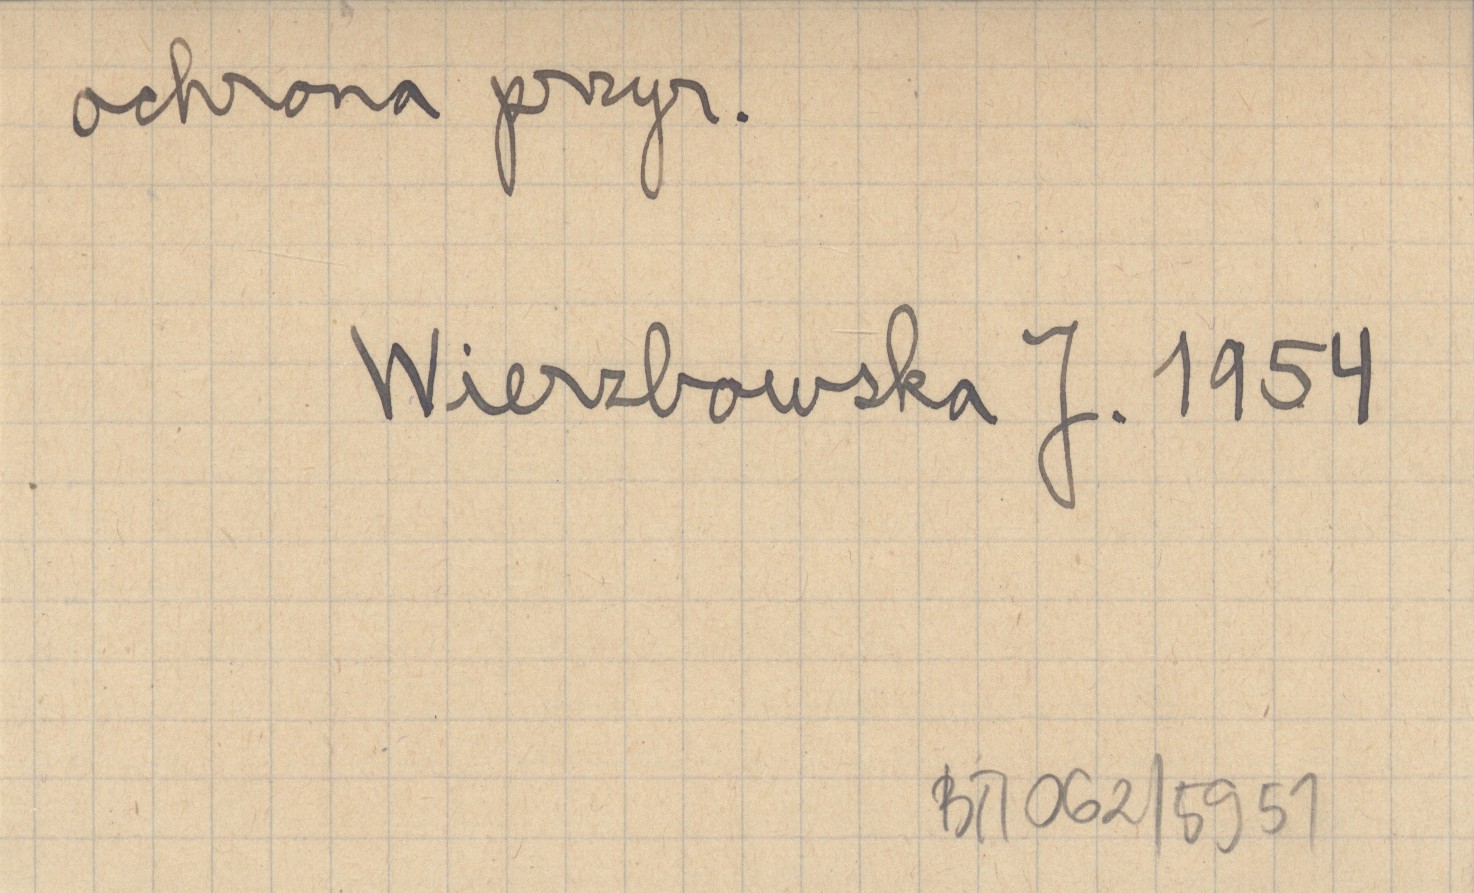 ochrona przyr.
Wierzbowska J. 1954
BП 062/5951